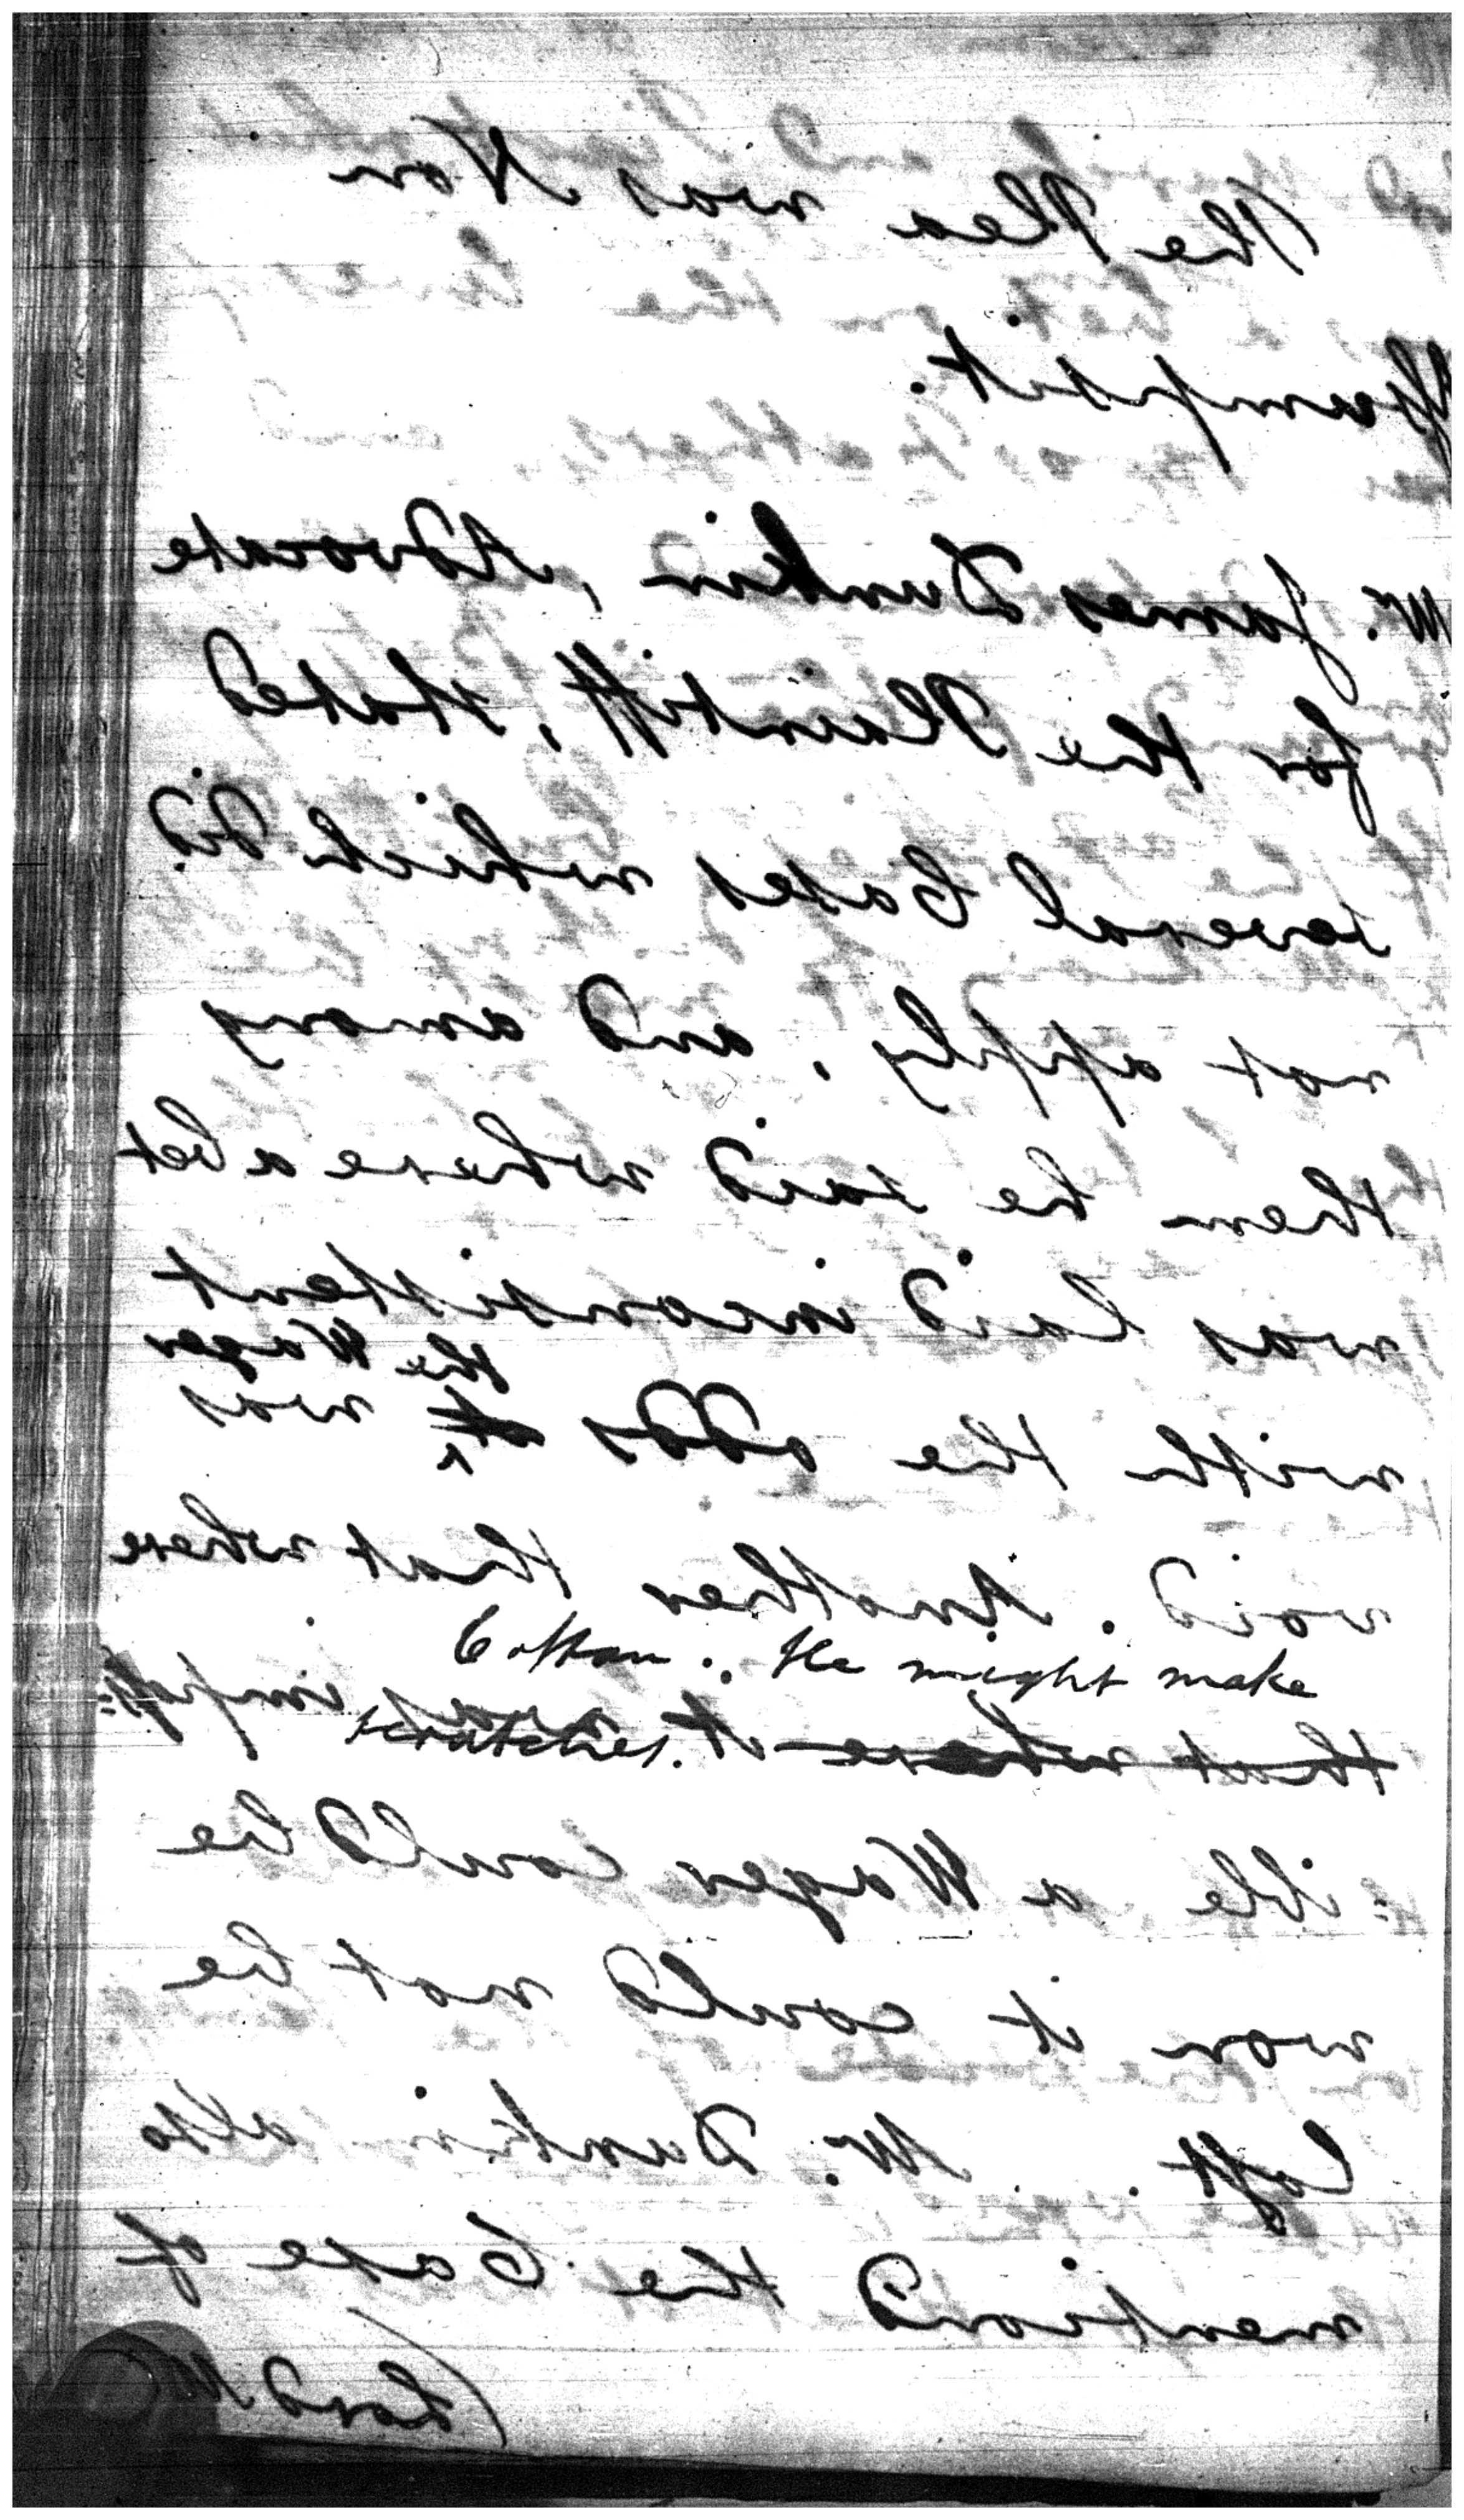 The Plea was Non
Assumpsit.
Mr. James Dunkin, Advocate
for the Plaintiff, stated
several Cases which did
not apply, and among
them he said where a bet
was laid inconsistent
the Wager
with the odds it was
void. Another that where
Cotton. He might make
scratches.
that where it was imposs=
=ible a Wager could be
won it could not be
lost. Mr. Dunkin also
mentiond the Case of
(Lord M